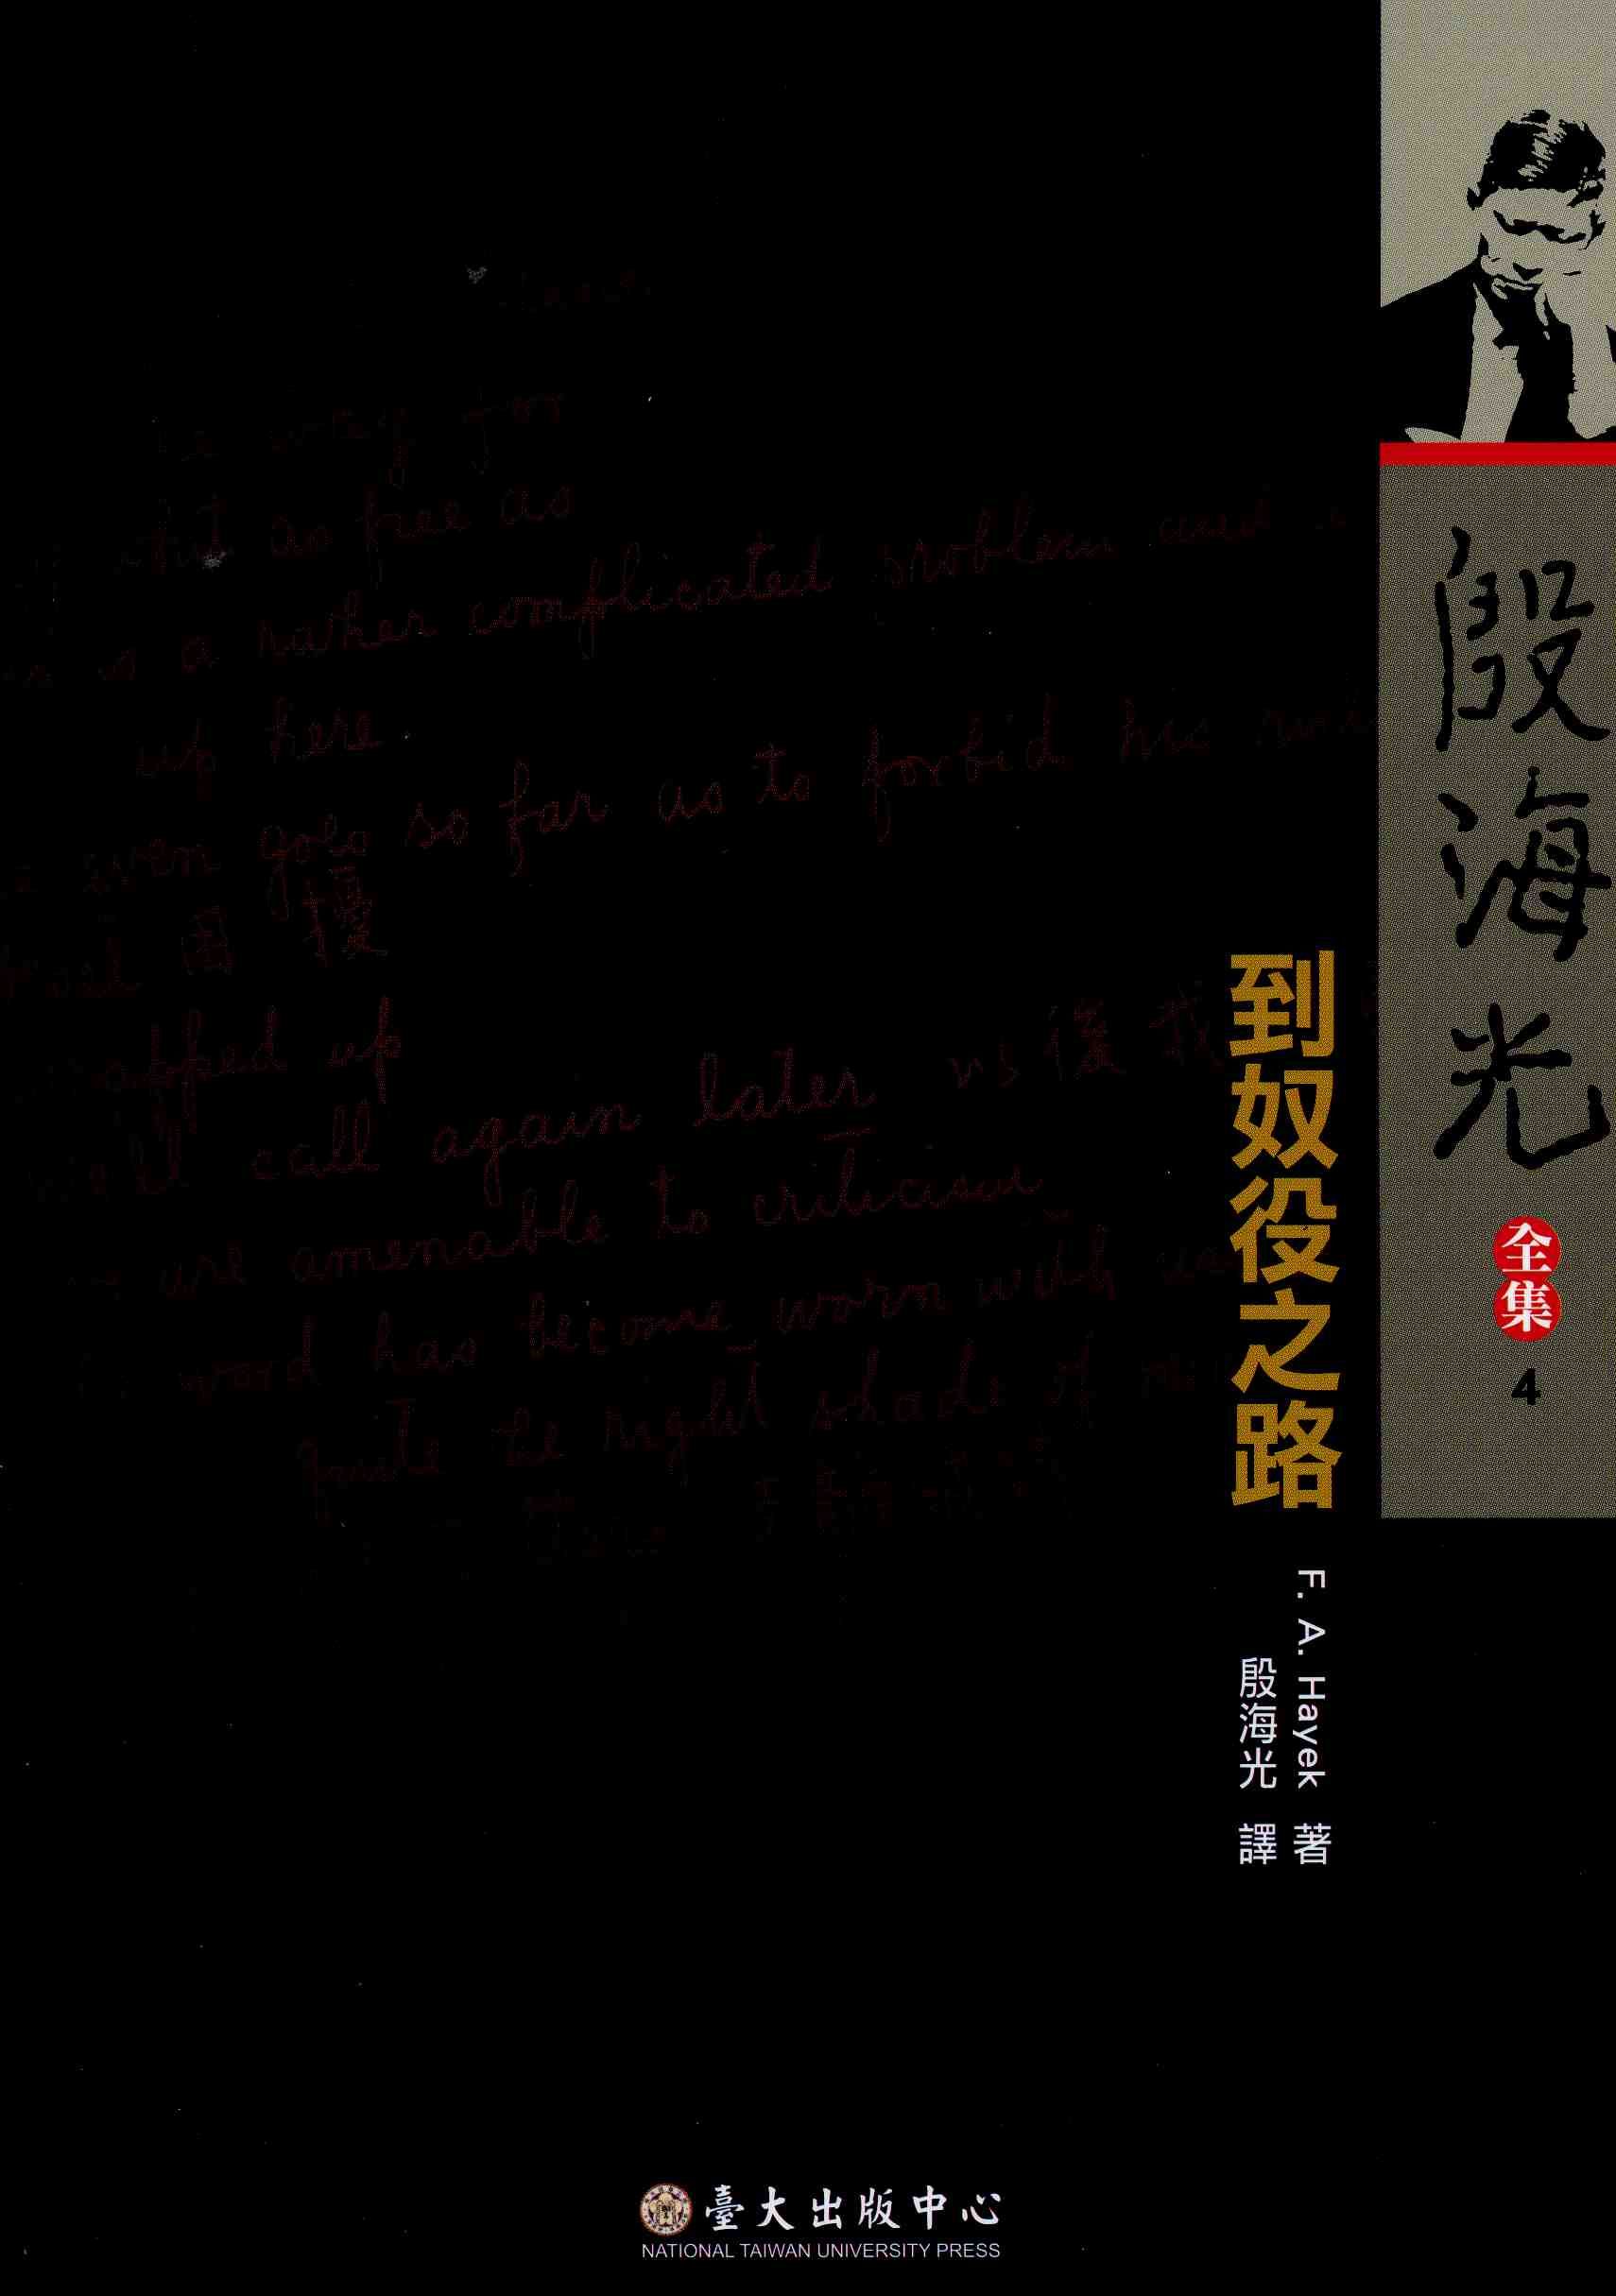 殷海光
全集
4
到奴役之路
F. A. Hayek 著
殷海光 譯
way for
as free as
a rather complicated problem and
up here.
even goes so far as to forbid his
困擾
up
call again later vs
are amenable to criticism
word has become worn with
quite the right shade of
臺大出版中心
NATIONAL TAIWAN UNIVERSITY PRESS